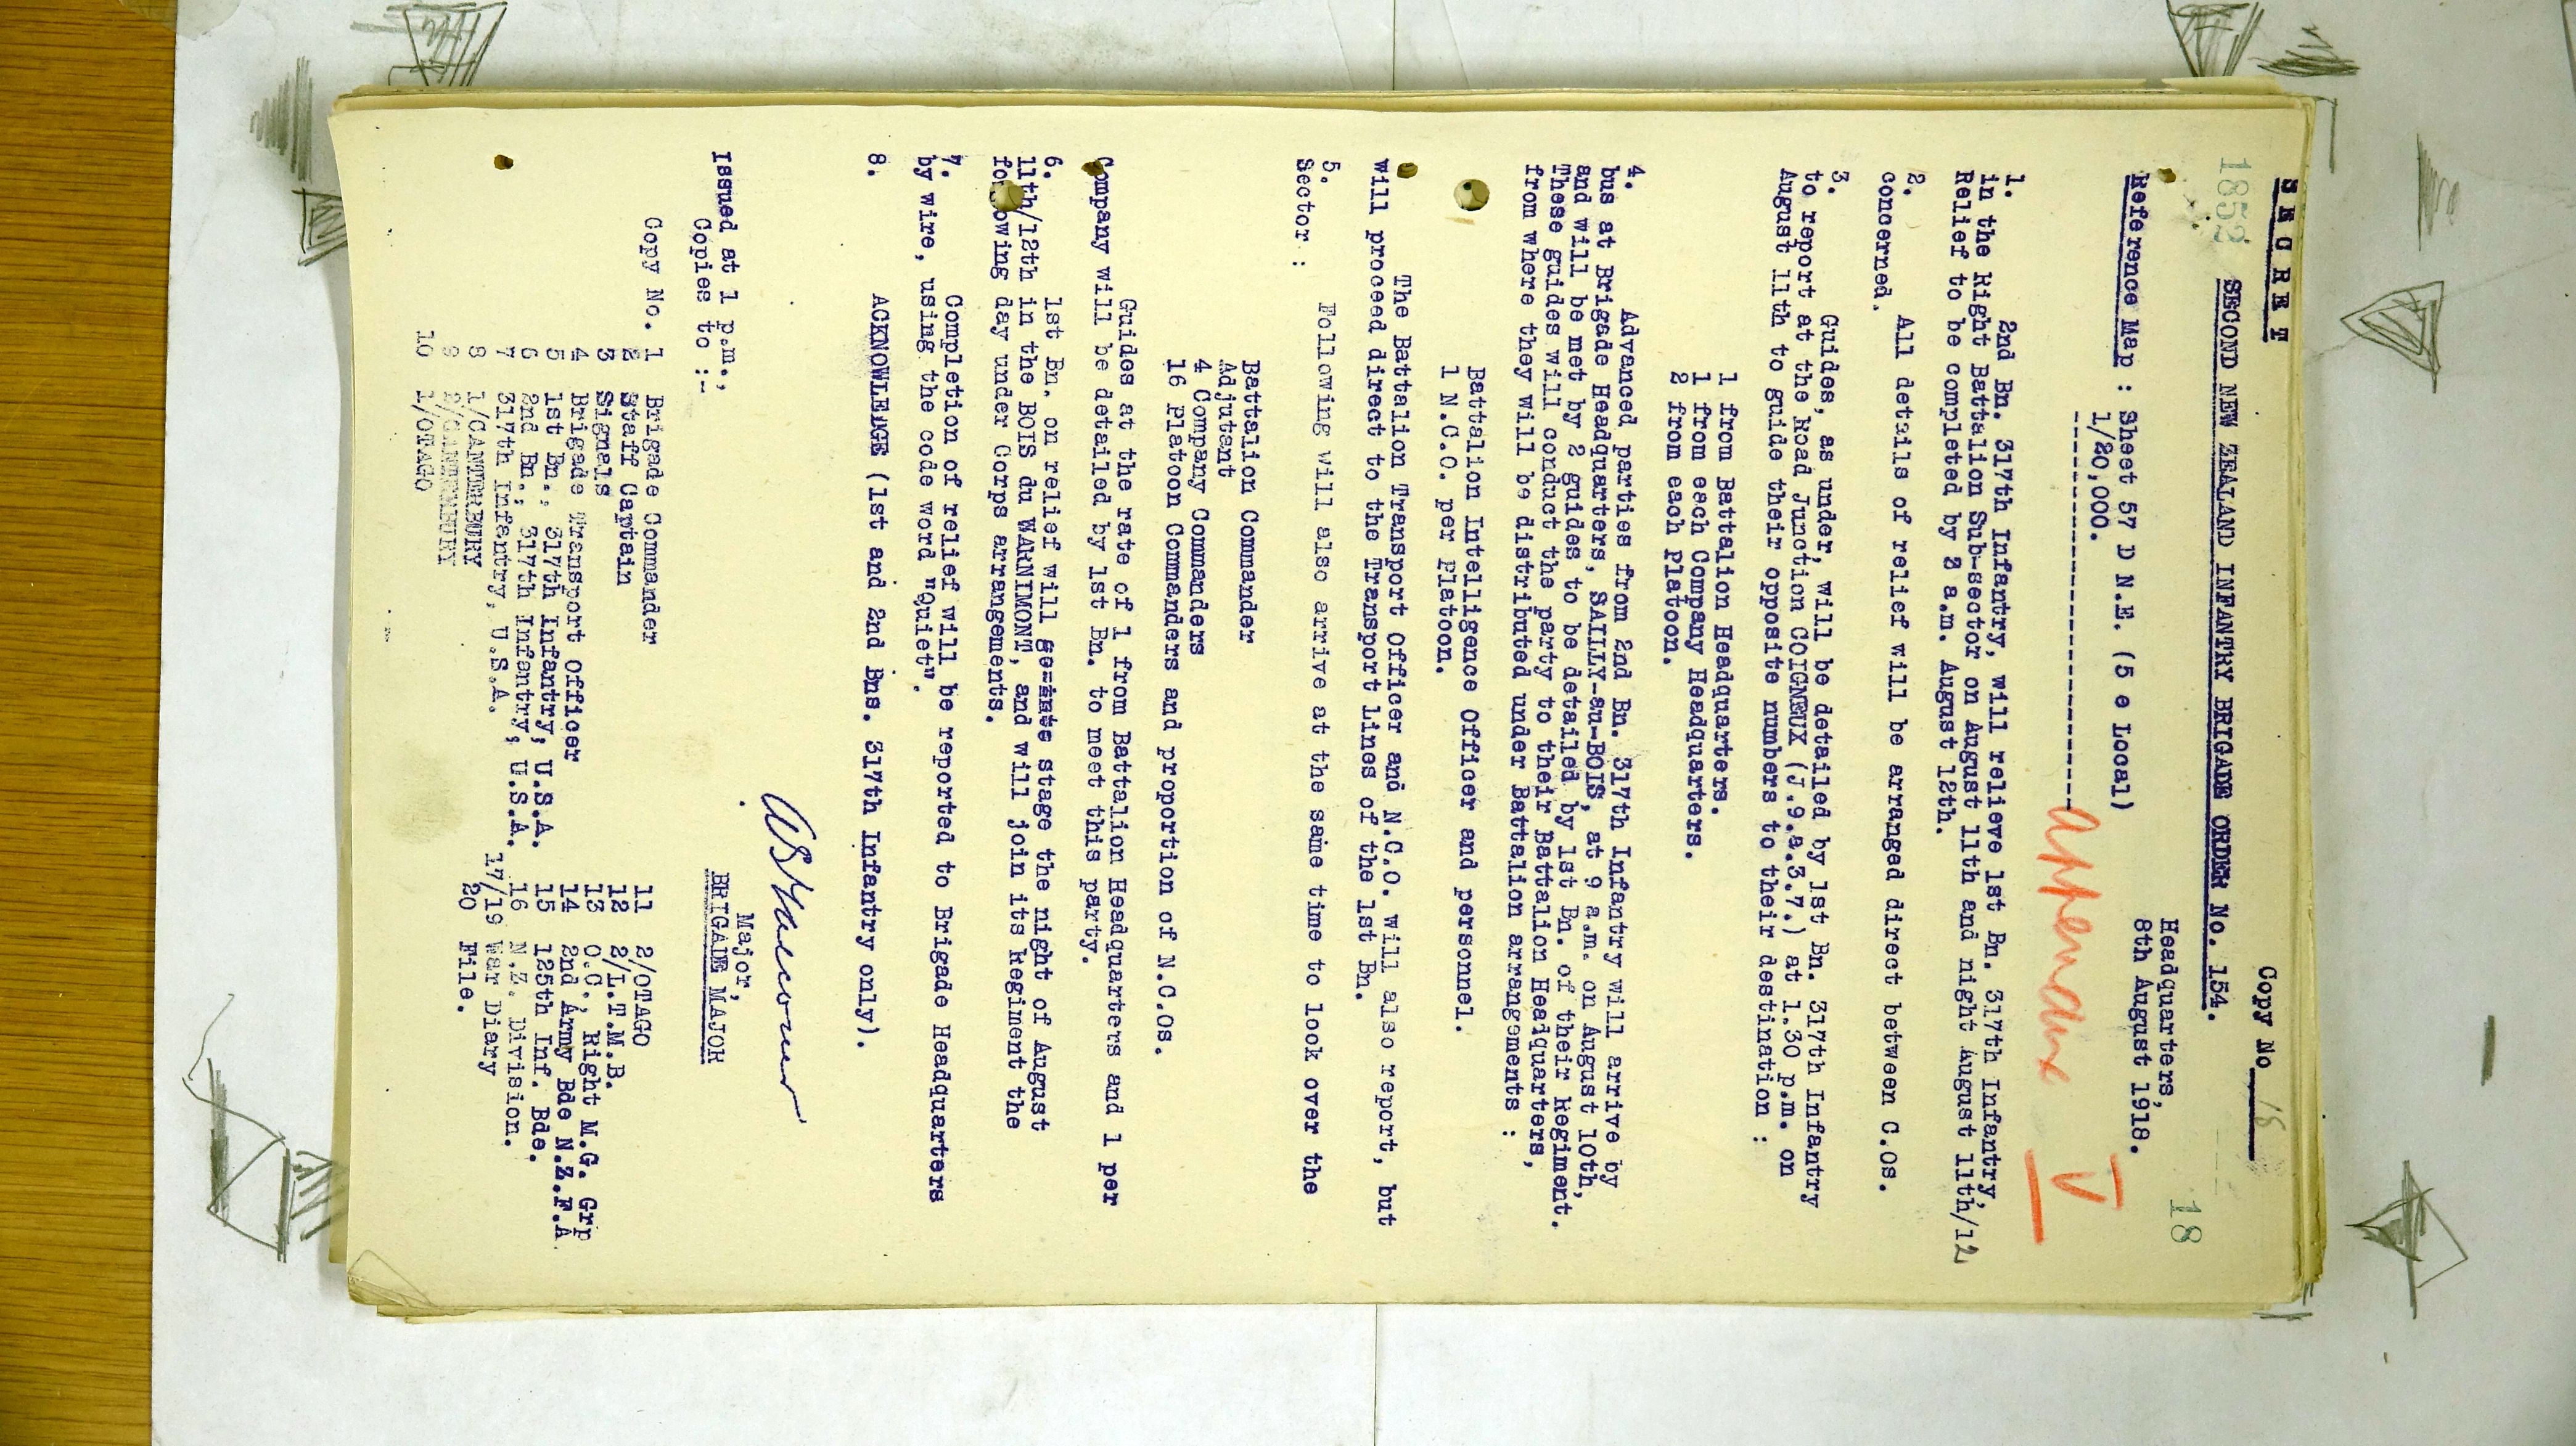 SECRET
Copy No 18
1852
SECOND NEW ZEALAND INFANTRY BRIGADE ORDER No. 154.
18
Headquarters,
8th August 1918.
Reference Map : Sheet 57 D N.E. (5 e Local)
1/20,000.
Appendix V
1. 2nd Bn. 317th Infantry, will relieve 1st Bn. 317th Infantry,
in the Right Battalion Sub-sector on August 11th and night August 11th/12
Relief to be completed by 2 a.m. August 12th.
2. All details of relief will be arranged direct between C.Os.
concerned.
3. Guides, as under, will be detailed by 1st Bn. 317th Infantry
to report at the Road Junction COIGNEUX (J.9.a.3.7.) at 1.30 p.m. on
August 11th to guide their opposite numbers to their destination :
1 from Battalion Headquarters.
1 from each Company Headquarters.
2 from each Platoon.
4. Advanced parties from 2nd Bn. 317th Infantry will arrive by
bus at Brigade Headquarters, SAILLY-au-BOIS, at 9 a.m. on August 10th,
and will be met by 2 guides to be detailed by 1st Bn. of their Regiment.
These guides will conduct the party to their Battalion Headquarters,
from where they will be distributed under Battalion arrangements :
Battalion Intelligence Officer and personnel.
1 N.C.O. per Platoon.
The Battalion Transport Officer and N.C.O. will also report, but
will proceed direct to the Transport Lines of the 1st Bn.
5. Following will also arrive at the same time to look over the
Sector :
Battalion Commander
Adjutant
4 Company Commanders
16 Platoon Commanders and proportion of N.C.Os.
Guides at the rate of 1 from Battalion Headquarters and 1 per
Company will be detailed by 1st Bn. to meet this party.
6. 1st Bn. on relief will go into stage the night of August
11th/12th in the BOIS du WARNIMONT, and will join its Regiment the
following day under Corps arrangements.
7. Completion of relief will be reported to Brigade Headquarters
by wire, using the code word "Quiet".
8. ACKNOWLEDGE (1st and 2nd Bns. 317th Infantry only).
Major,
BRIGADE MAJOR
Issued at 1 p.m.,
Copies to :-
Copy No. 1 Brigade Commander
2 Staff Captain
3 Signals
4 Brigade Transport Officer
5 1st Bn., 317th Infantry, U.S.A.
6 2nd Bn., 317th Infantry, U.S.A.
7 317th Infantry, U.S.A.
8 1/CANTERBURY
9 2/CANTERBURY
10 1/OTAGO
11 2/OTAGO
12 2/L.T.M.B.
13 O.C., Right M.G. Grp
14 2nd Army Bde N.Z.F.A
15 125th Inf. Bde.
16 N.Z. Division.
17/19 War Diary
20 File.